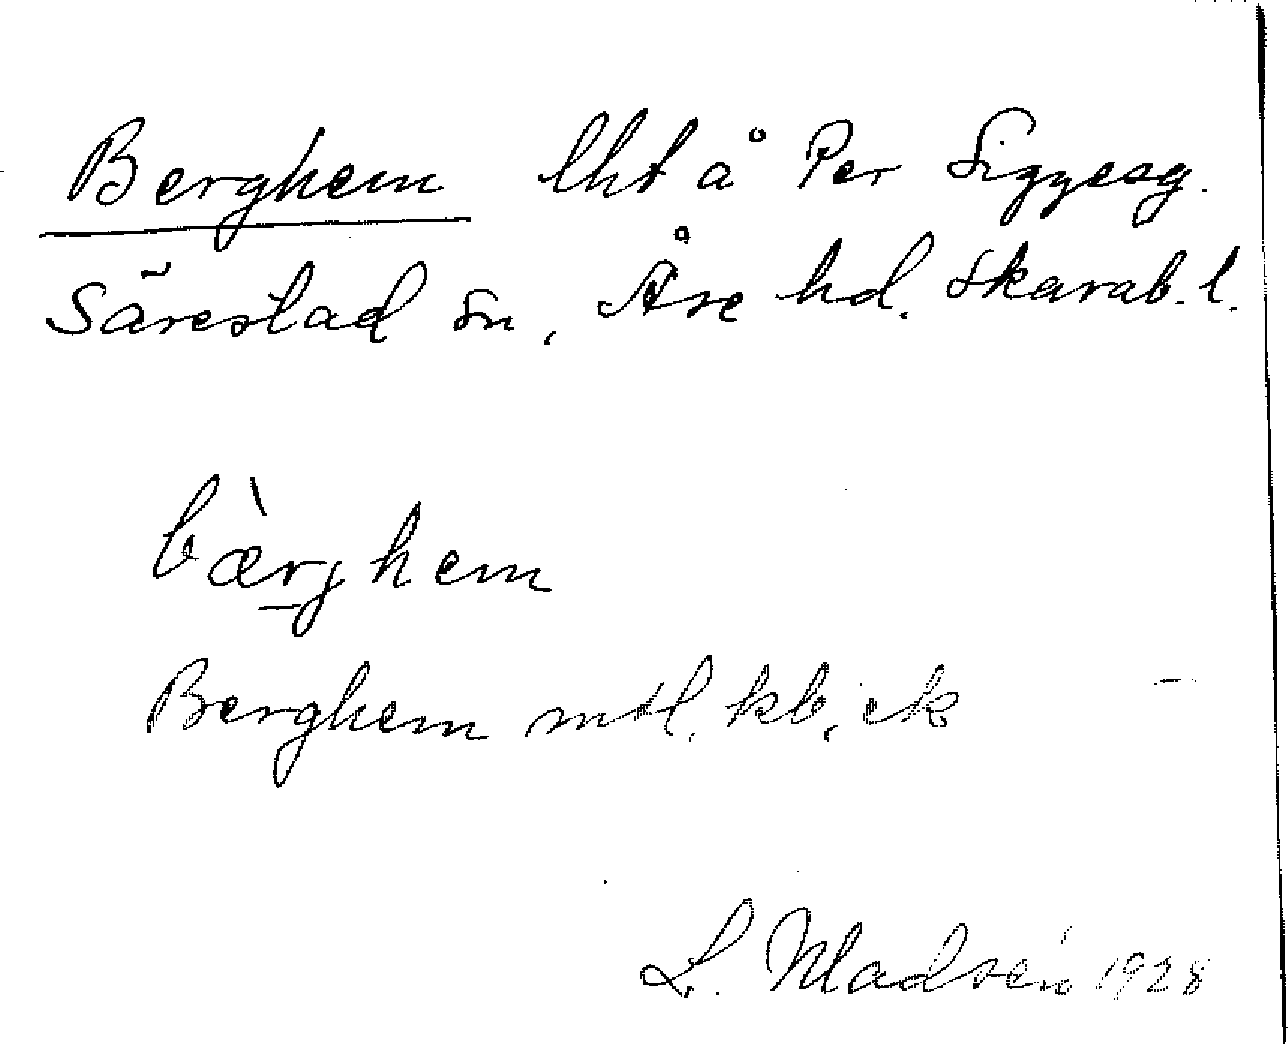 Berghem lht å Per Siggesg.
Särestad sn, Åse hd. Skarab. l.
bæ̀rghem
Berghem mtl. kb, ek
L. Madsén 1928